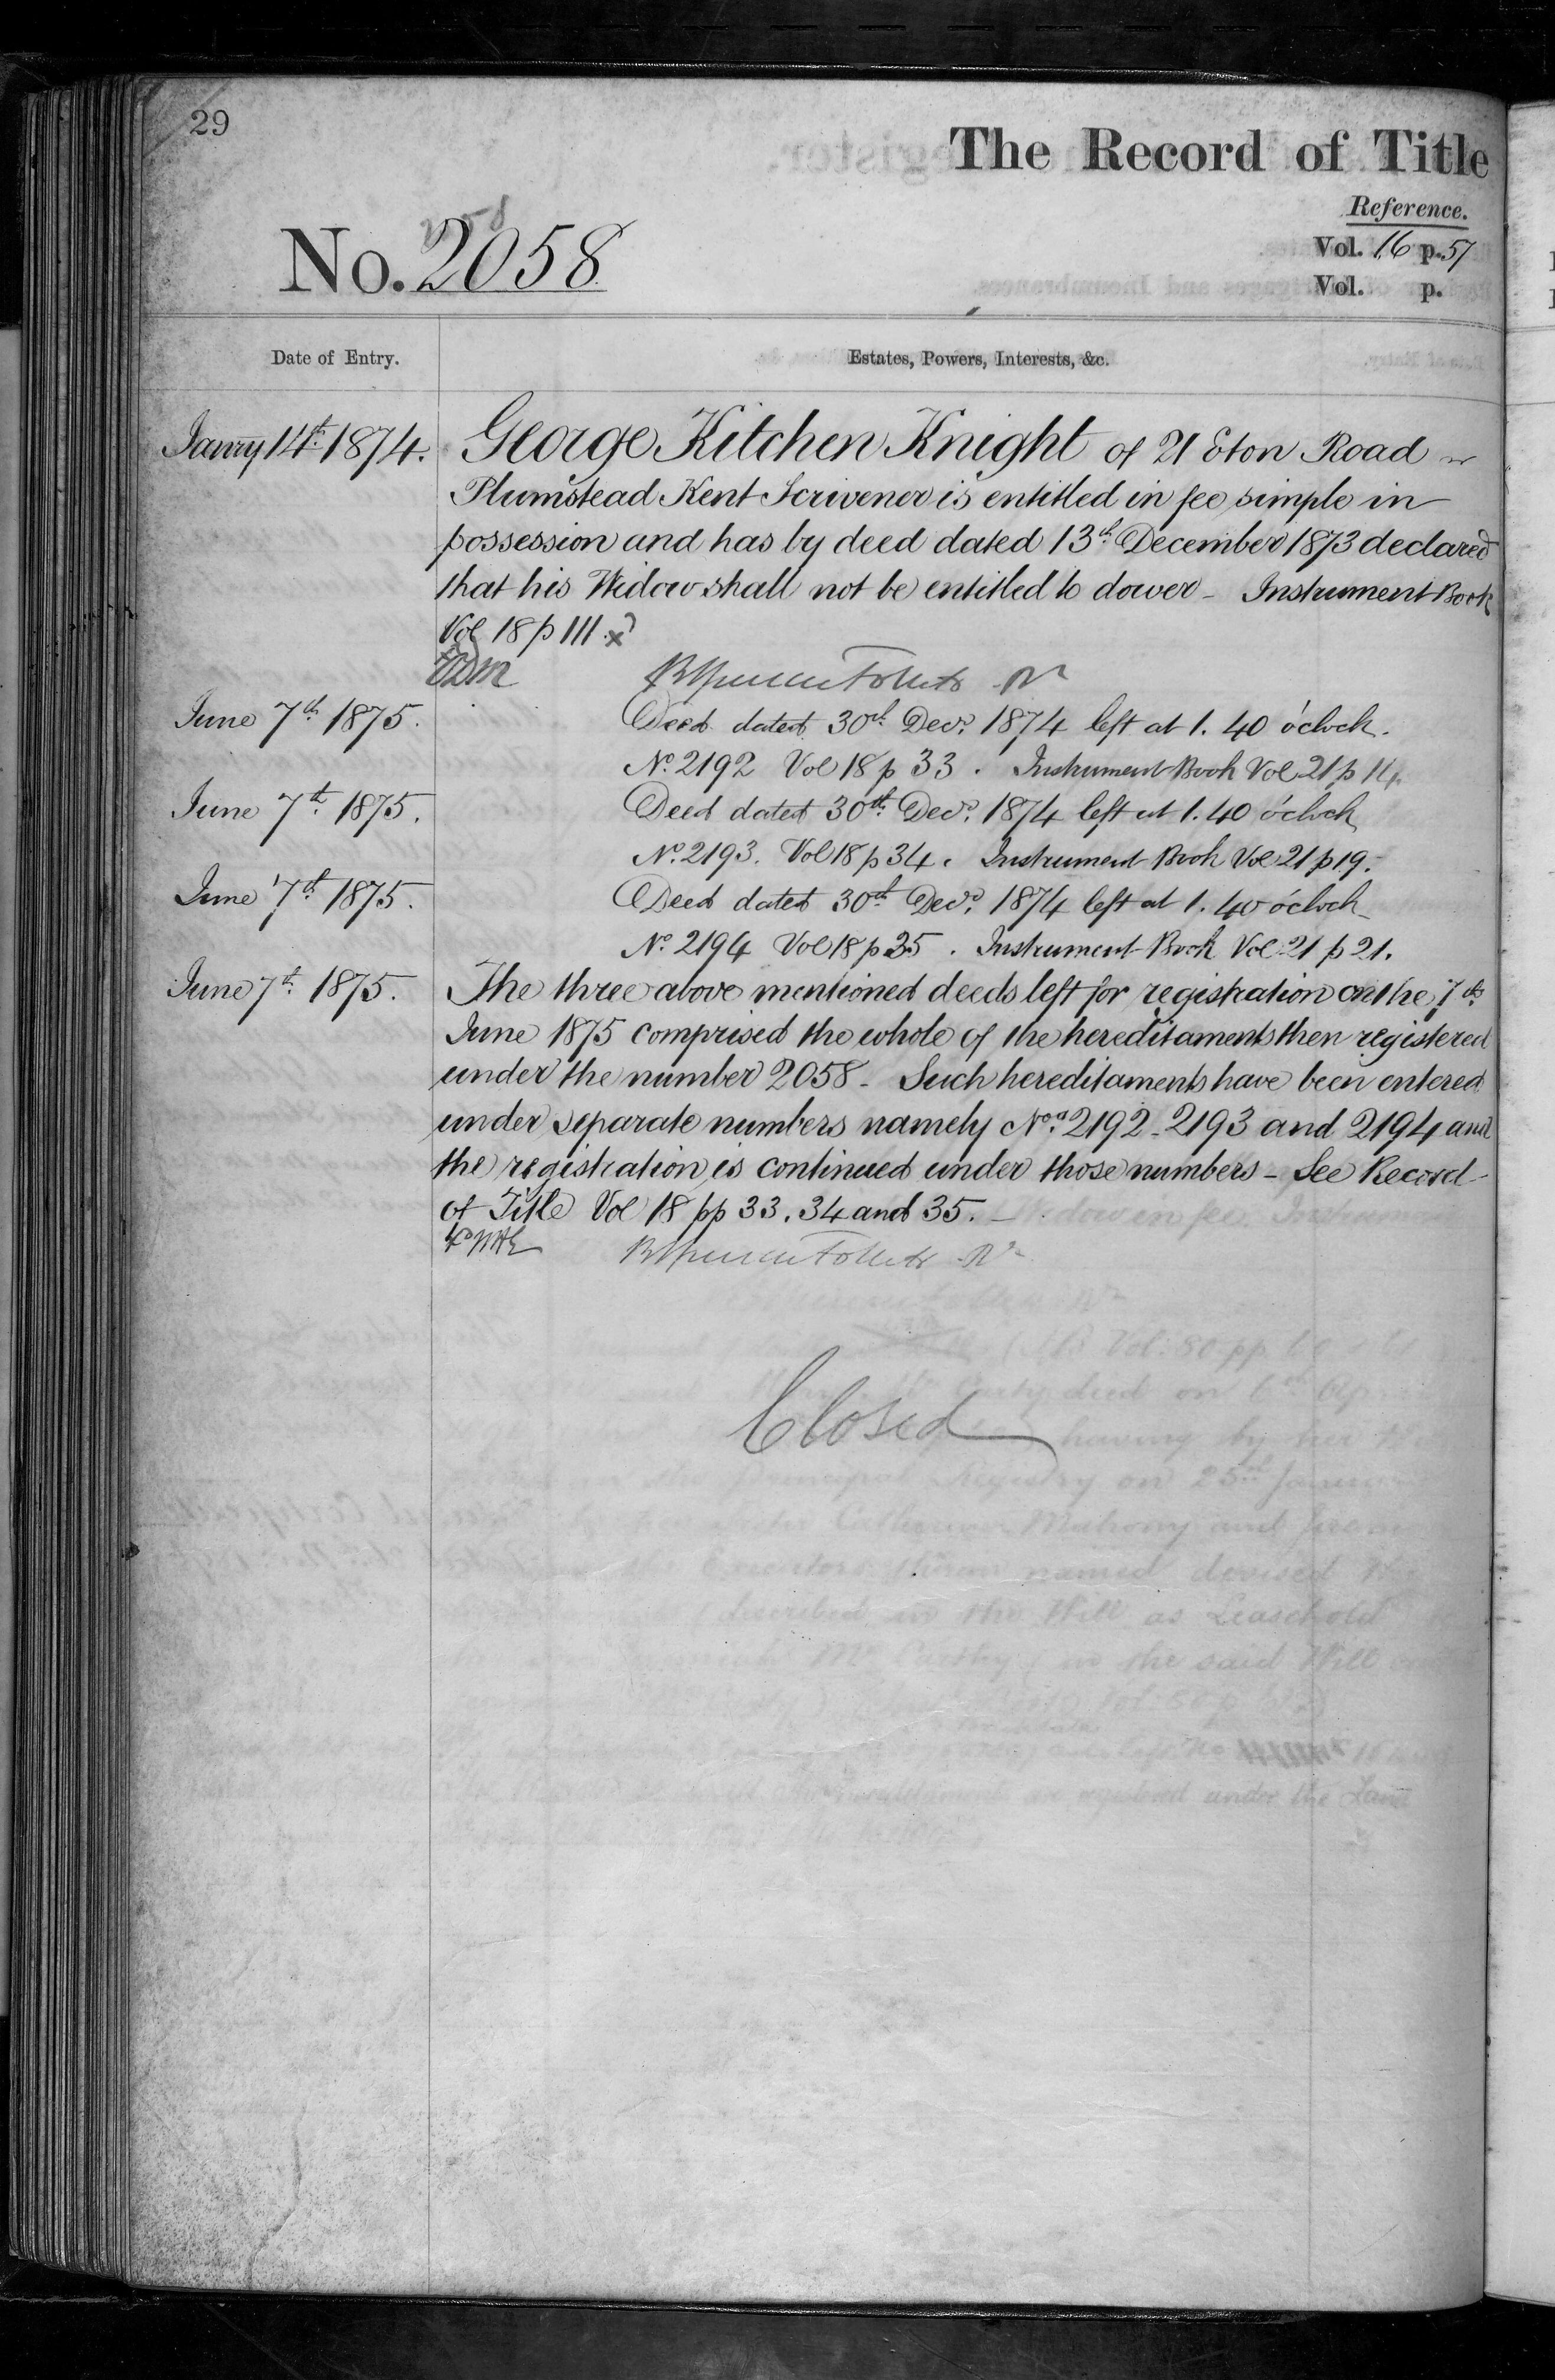 29
The Record of Title
Reference.
No. 2058
Vol. 16 p. 57
Vol. p.
Date of Entry.
Estates, Powers, Interests, &c.
Janry 14th 1874.
George Kitchen Knight of 21 Eton Road
Plumstead Kent Scrivener is entitled in fee simple in
possession and has by deed dated 13th December 1873 declared
that his Widow shall not be entitled to dower - Instrument Book
Vol 18 p 111. x
June 7th 1875.
Deed dated 30th Decr. 1874 left at 1. 40 o'clock.
No. 2192 Vol 18 p 33. Instrument Book Vol 21 p 14.
June 7th 1875.
Deed dated 30th Decr. 1874 left at 1. 40 o'clock
No. 2193. Vol 18 p 34. Instrument Book Vol 21 p 19.
June 7th 1875.
Deed dated 30th Decr. 1874 left at 1. 40 o'clock
No. 2194 Vol 18 p 35. Instrument Book Vol 21 p 21.
June 7th 1875.
The three above mentioned deeds left for registration on the 7th
June 1875 comprised the whole of the hereditaments then registered
under the number 2058 - Such hereditaments have been entered
under separate numbers namely Nos. 2192 - 2193 and 2194 and
the registration is continued under those numbers - See Record
of Title Vol 18 pp 33. 34 and 35. -
Closed